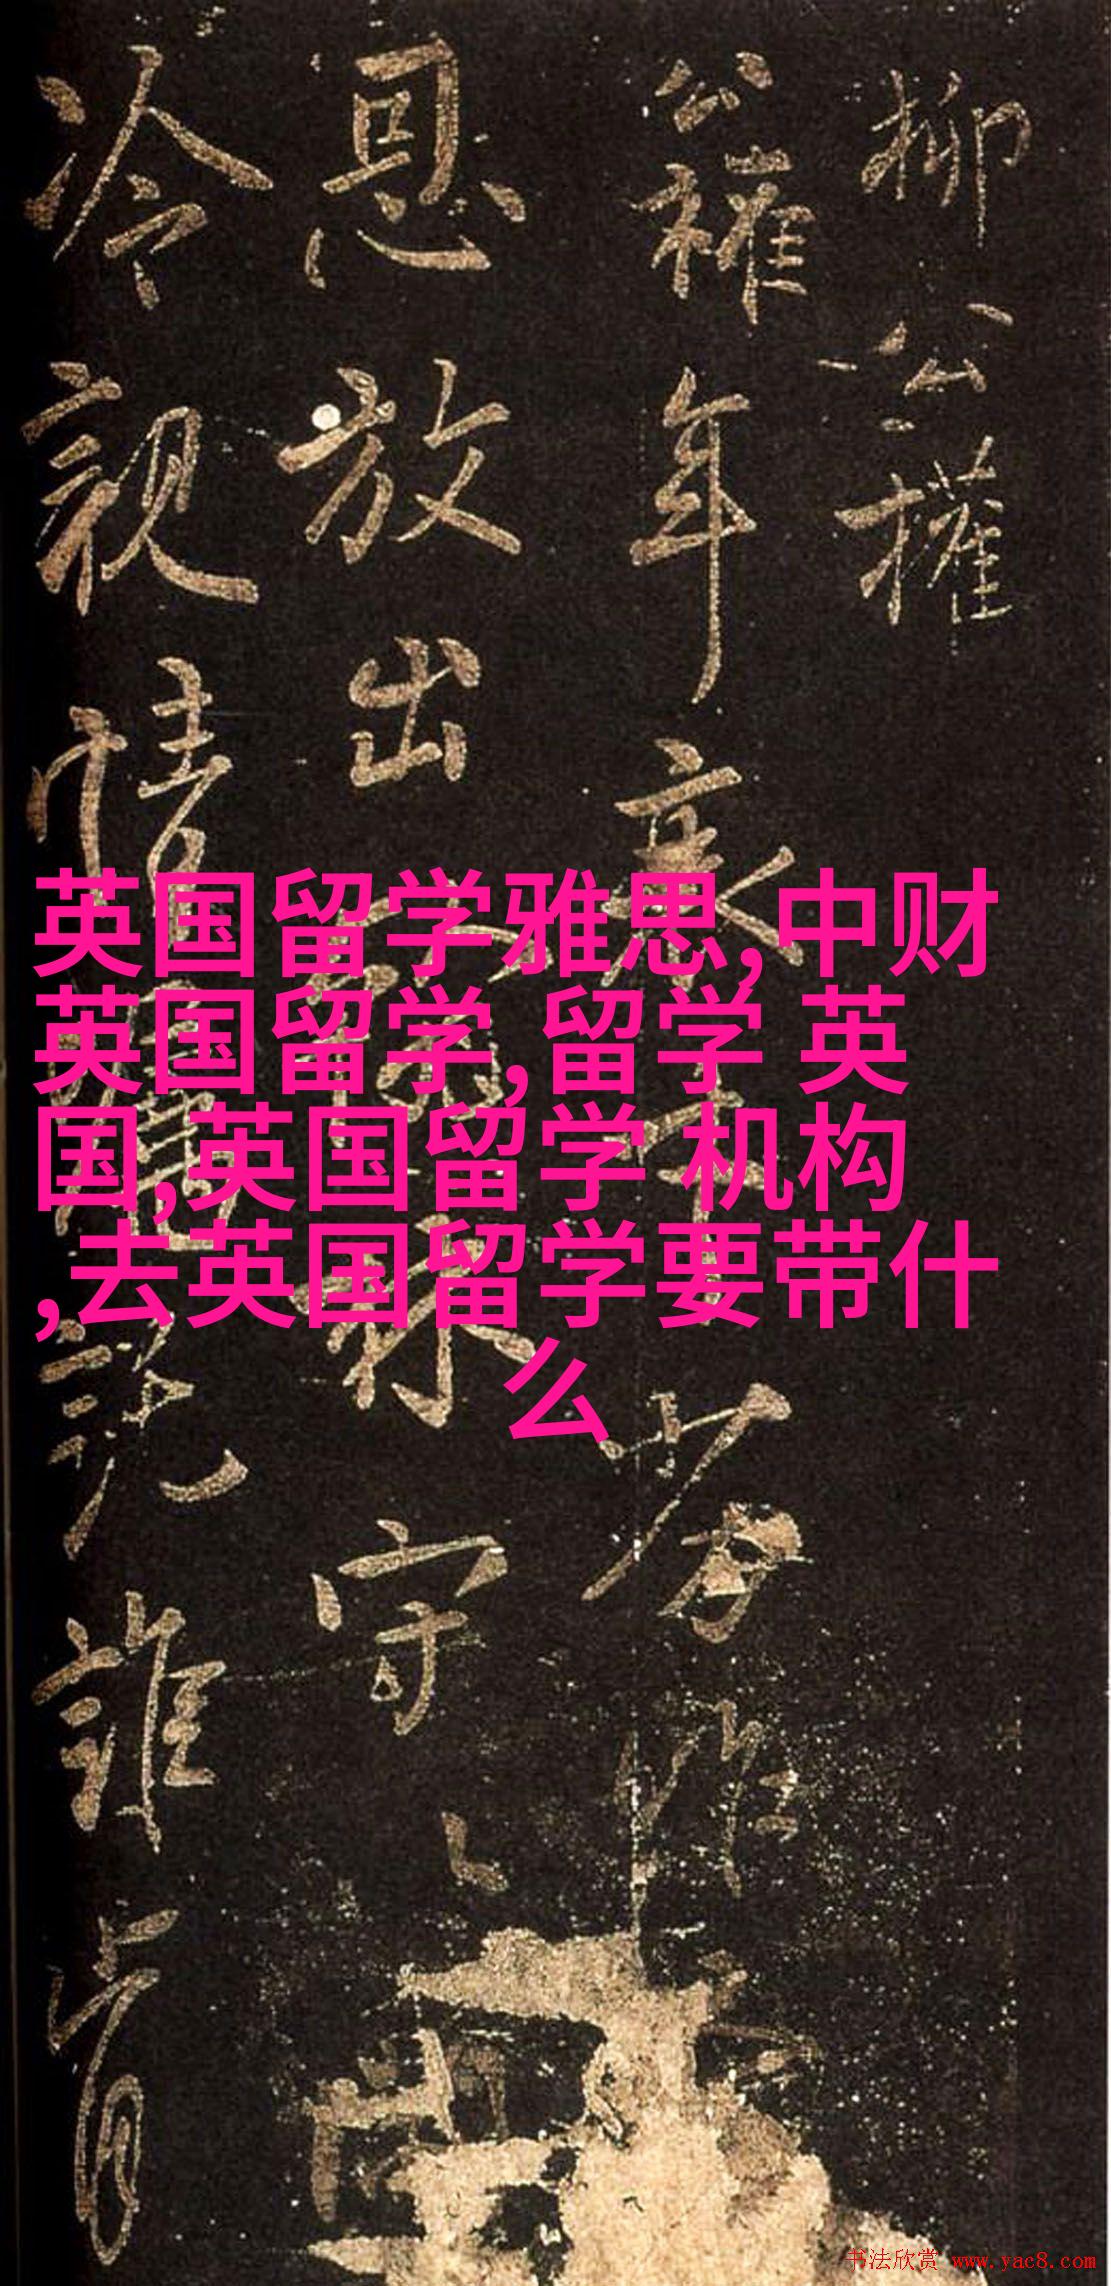 柳公權
公權年衰才劣昨
恩放出
守
冷親情嘱託誰肯
英国留学雅思,中财
英国留学,留学 英
国,英国留学 机构
,去英国留学要带什
么
书法欣赏 www.yac8.com